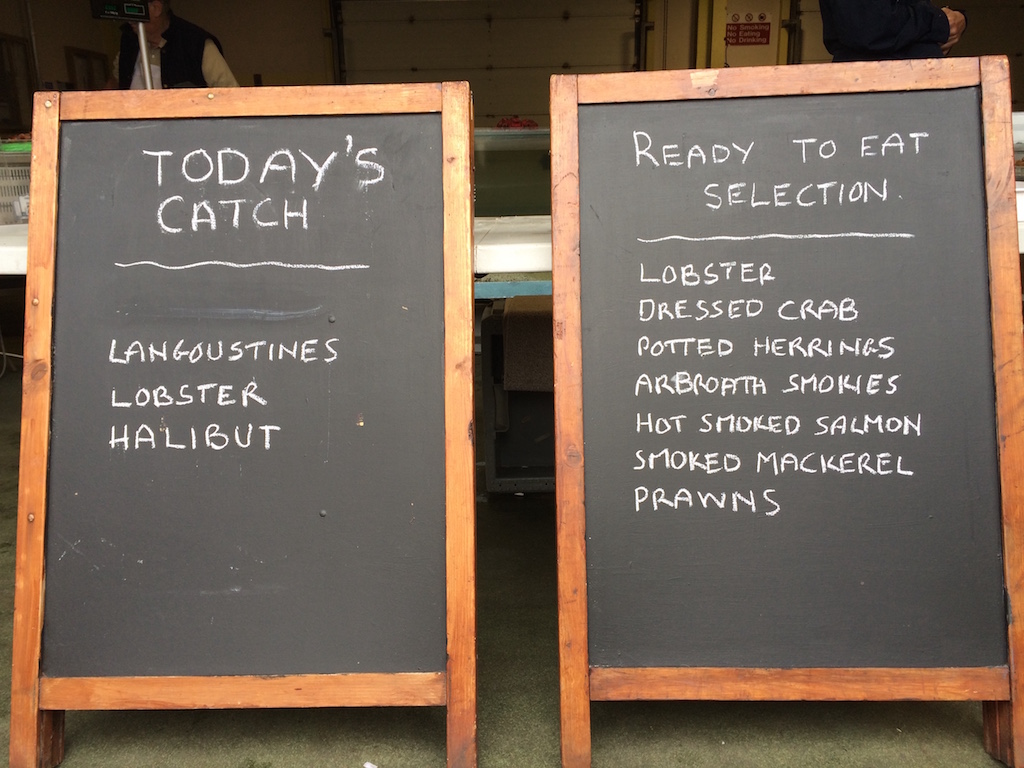 No Smoking
No Eating
No Drinking
TODAY'S
CATCH
LANGOUSTINES
LOBSTER
HALIBUT
READY TO EAT
SELECTION.
LOBSTER
DRESSED CRAB
POTTED HERRINGS
ARBROATH SMOKIES
HOT SMOKED SALMON
SMOKED MACKEREL
PRAWNS